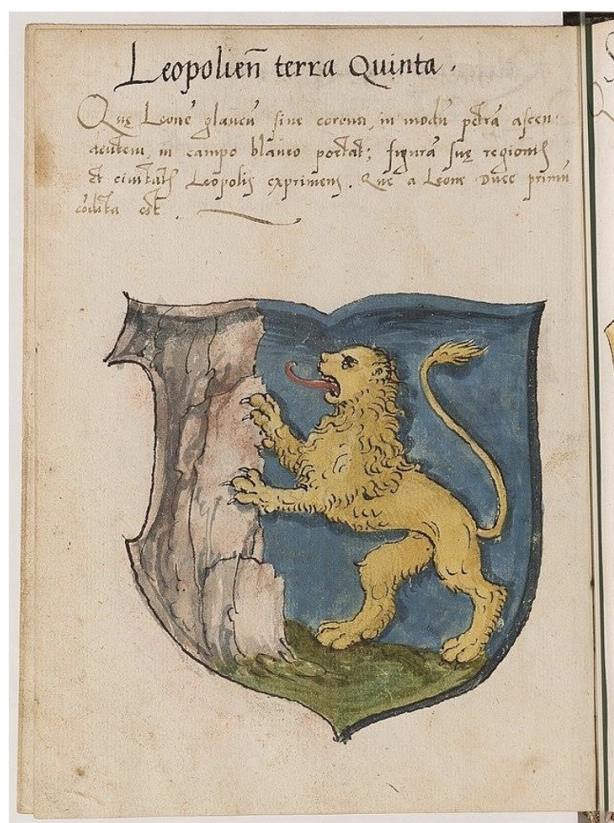 Leopolieñ terra Quinta.
Quę Leonē glaucū sine corona, in modū petrā ascen-
dentem, in campo blaueo portat; figurā suę regionis
et civitatis Leopolis exprimens. Quę a Leone Duce primū
codita est.